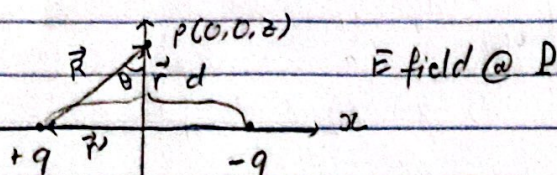 P(0,0,z)
R⃗ θ r⃗ d E field @ P
x
+q r⃗' -q